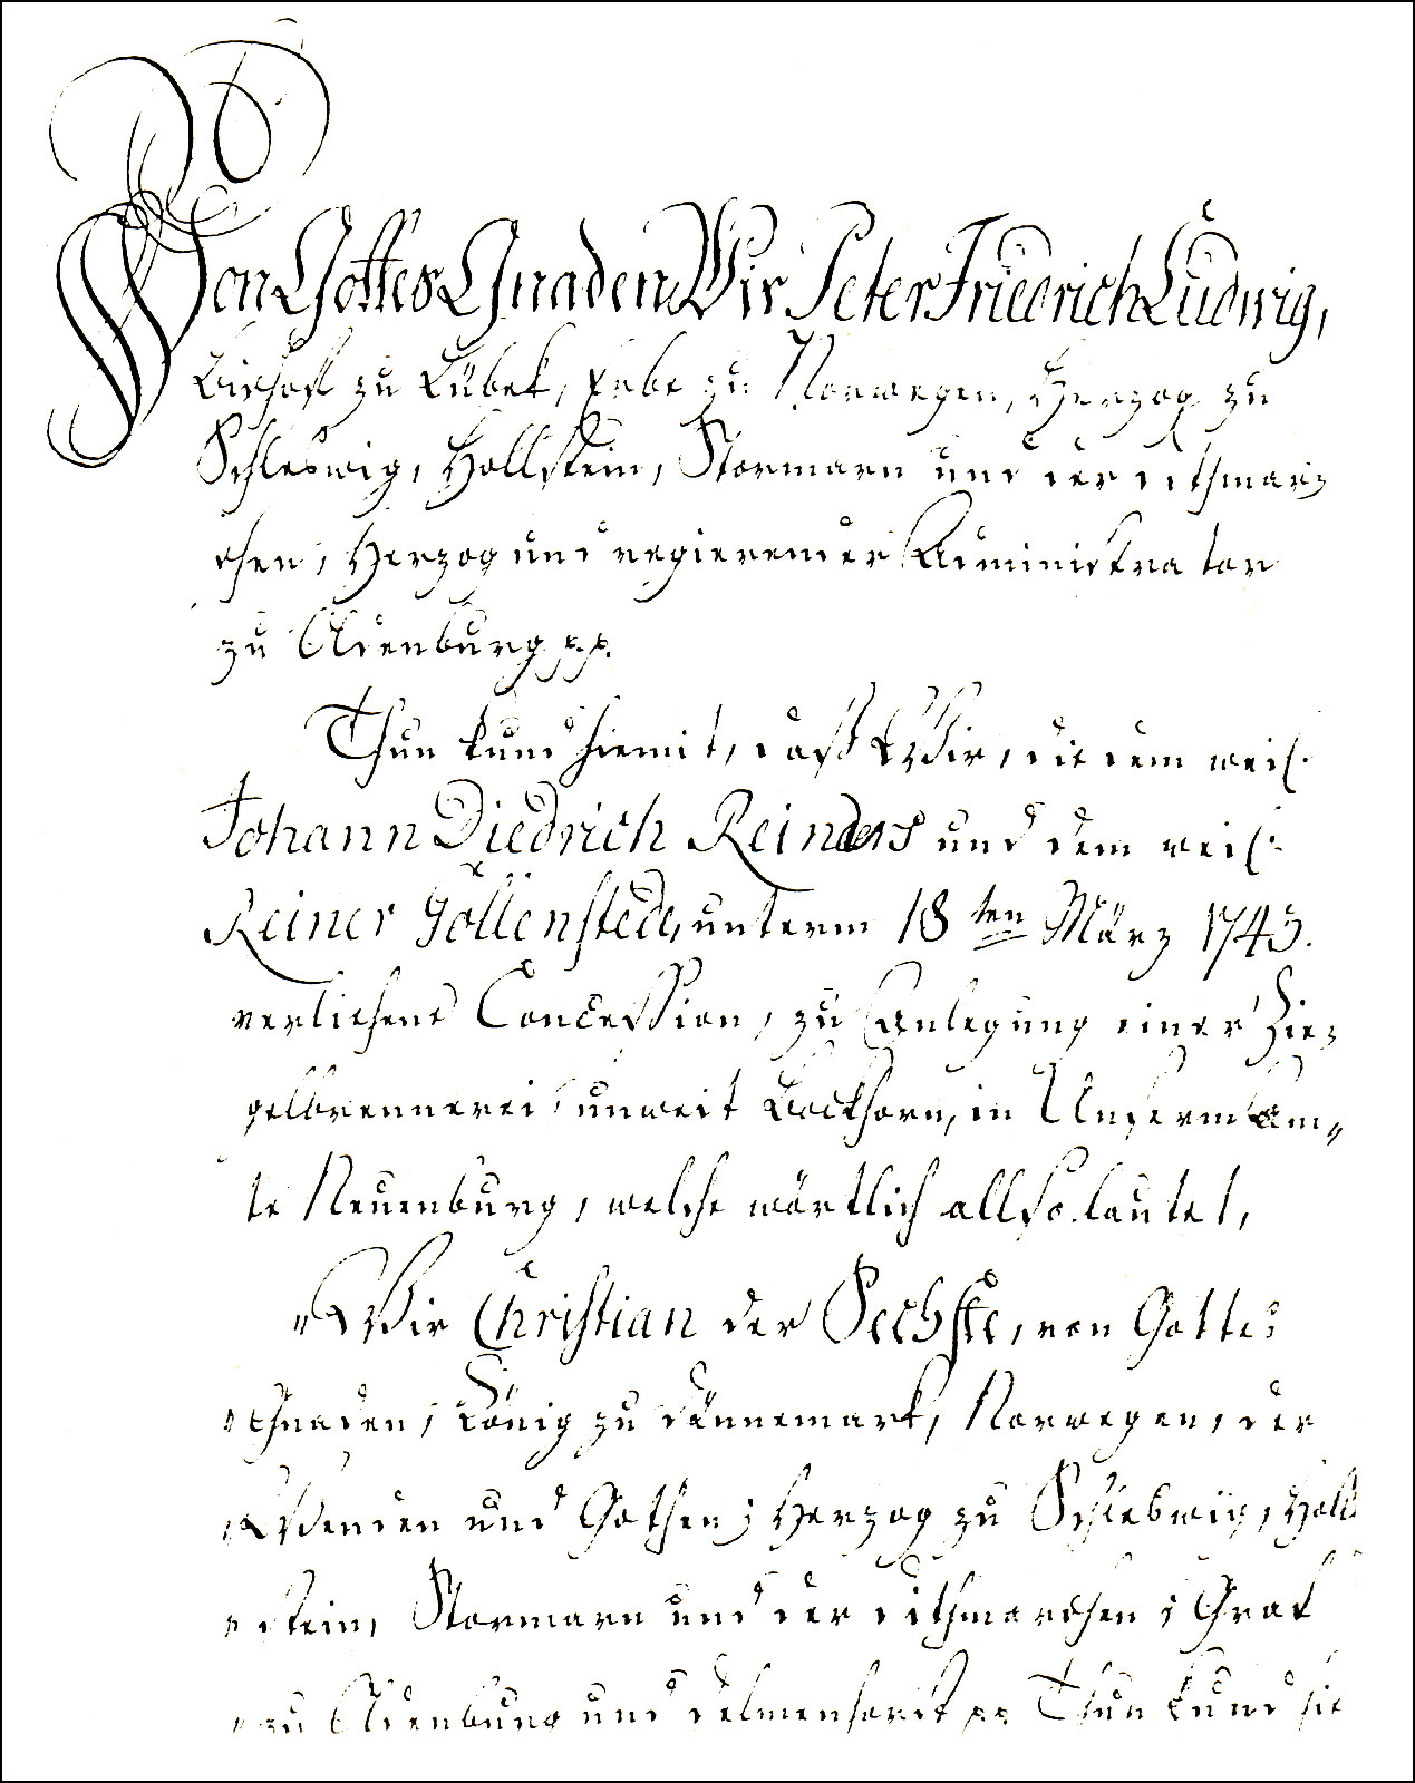 Von Gottes Gnaden Wir Peter Friedrich Ludwig,
Bischof zu Lübek, Erbe zu Norwegen, Herzog zu
Schleswig, Hollstein, Stormarn und der Dithmar-
chen, Herzog und regierender Administrator
zu Oldenburg pp.
Thun kund hiemit, daß Wir, die dem weil.
Johann Diedrich Reinders und dem weil.
Reiner Göllenstede, unterm 18ten März 1743.
verliehene Concession, zu Anlegung einer Zie-
gelbrennerei, unweit Bockhorn, in Unserm Am-
te Neuenburg, welche wörtlich allso lautet,
"Wir Christian der Sechste, von Gottes
"Gnaden, König zu Dännemark, Norwegen, der
"Wenden und Gothen; Herzog zu Schleswig, Holl
"stein, Stormarn und der Dithmarschen; Graf
"zu Oldenburg und Delmenhorst pp Thun kund hie